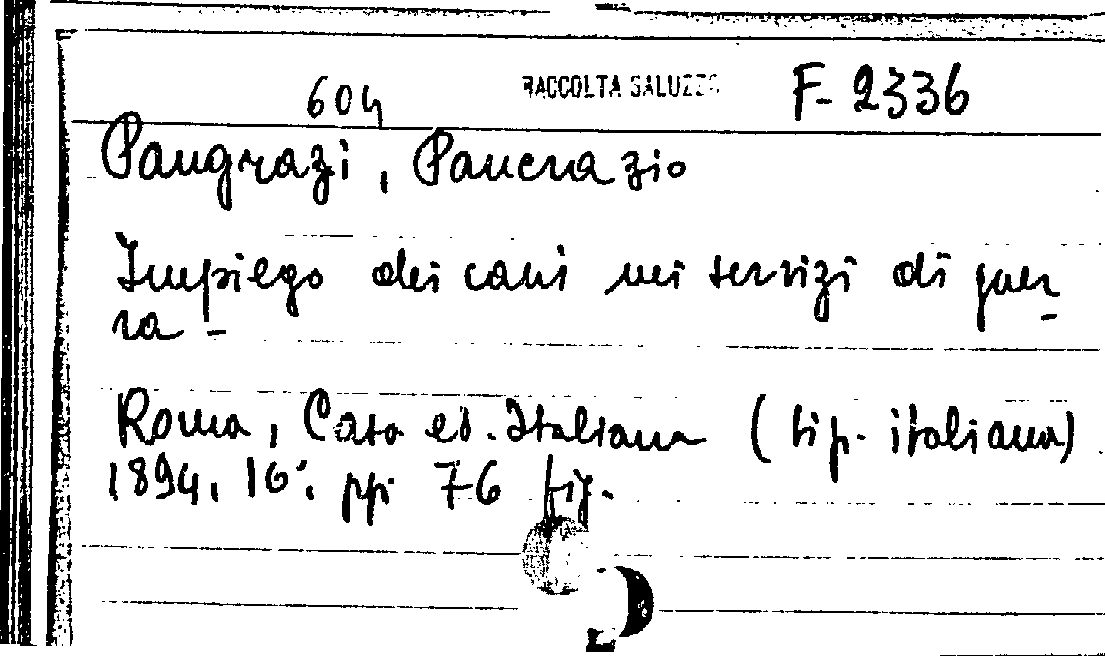 604 RACCOLTA SALUZZO F-2336
Pangrazi, Pancrazio
Impiego dei cani nei servizi di guer
ra -
Roma, Casa ed. Italiana (tip. italiana)
1894, 16°. pp. 76 fig.